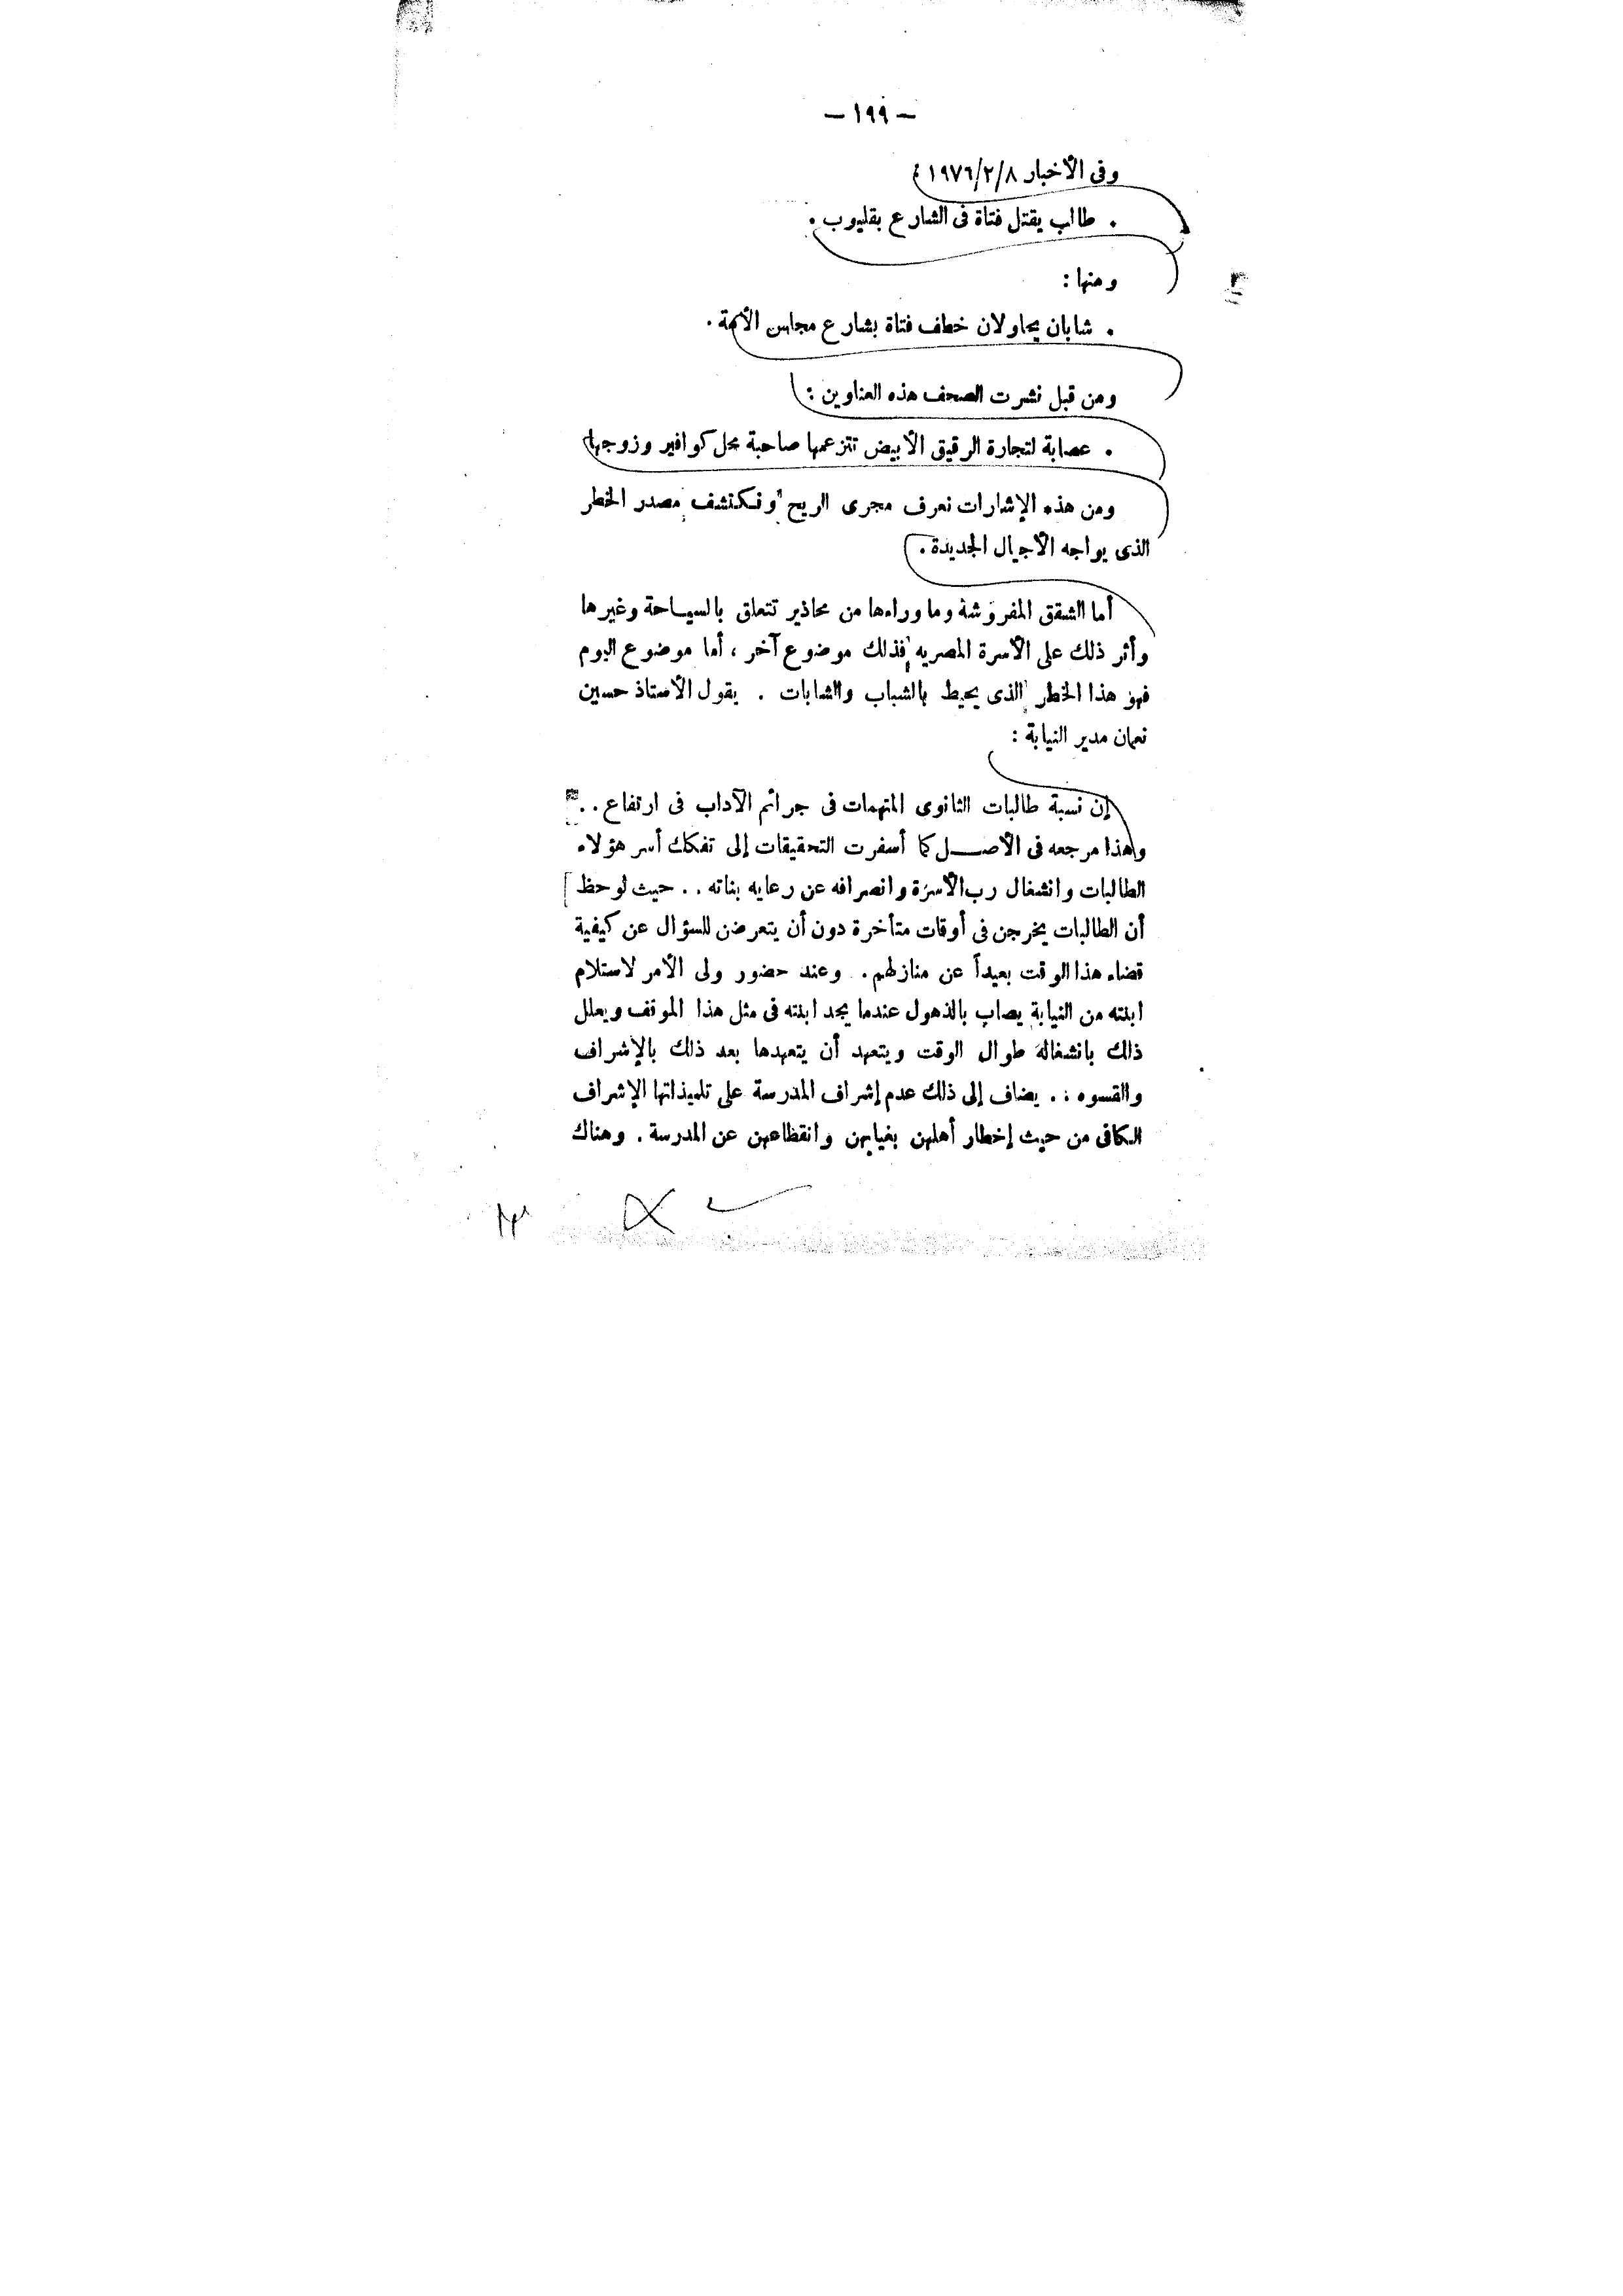 — ١٩٩ —
وفى الأخبار ١٩٧٦/٢/٨ م
. طالب يقتل فتاة فى الشارع بقليوب .
ومنها :
. شابان يحاولان خطف فتاة بشارع مجلس الأمة .
ومن قبل نشرت الصحف هذه العناوين :
. عصابة لتجارة الرقيق الأبيض تتزعمها صاحبة محل كوافير وزوجها
ومن هذه الإشارات نعرف مجرى الريح ونكتشف مصدر الخطر
الذى يواجه الأجيال الجديدة .
أما الشقق المفروشة وما وراءها من محاذير تتعلق بالسياحة وغيرها
وأثر ذلك على الأسرة المصريه فذلك موضوع آخر ، أما موضوع اليوم
فهو هذا الخطر الذى يحيط بالشباب والشابات . يقول الأستاذ حسين
نعمان مدير النيابة :
إن نسبة طالبات الثانوى المتهمات فى جرائم الآداب فى ارتفاع . .
وهذا مرجعه فى الأصل كما أسفرت التحقيقات إلى تفكك أسر هؤلاء
الطالبات وانشغال رب الأسرة وانصرافه عن رعايه بناته . . حيث لوحظ
أن الطالبات يخرجن فى أوقات متأخرة دون أن يتعرضن للسؤال عن كيفية
قضاء هذا الوقت بعيداً عن منازلهم . وعند حضور ولى الأمر لاستلام
ابنته من النيابة يصاب بالذهول عندما يجد ابنته فى مثل هذا الموقف ويعلل
ذلك بانشغاله طوال الوقت ويتعهد أن يتعهدها بعد ذلك بالإشراف
والقسوه . . يضاف إلى ذلك عدم إشراف المدرسة على تلميذاتها الإشراف
الكافى من حيث إخطار أهلهن بغيابهن وانقظاعهن عن المدرسة . وهناك